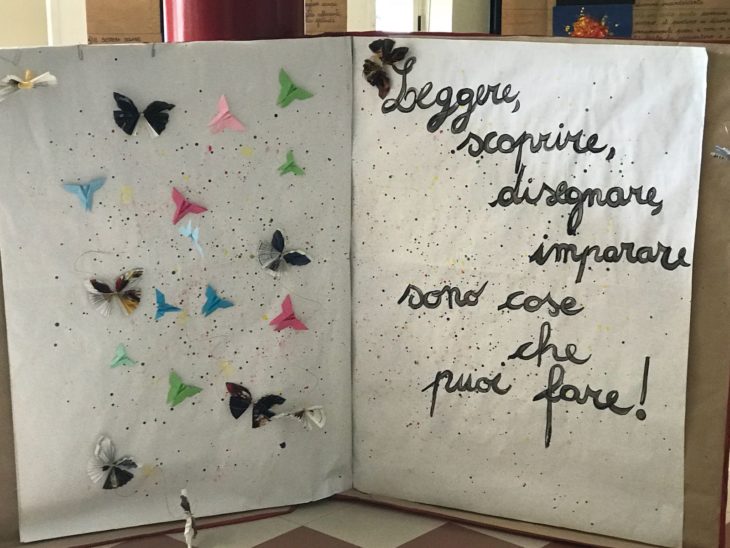 Leggere,
scoprire,
disegnare,
imparare
sono cose
che
puoi fare!